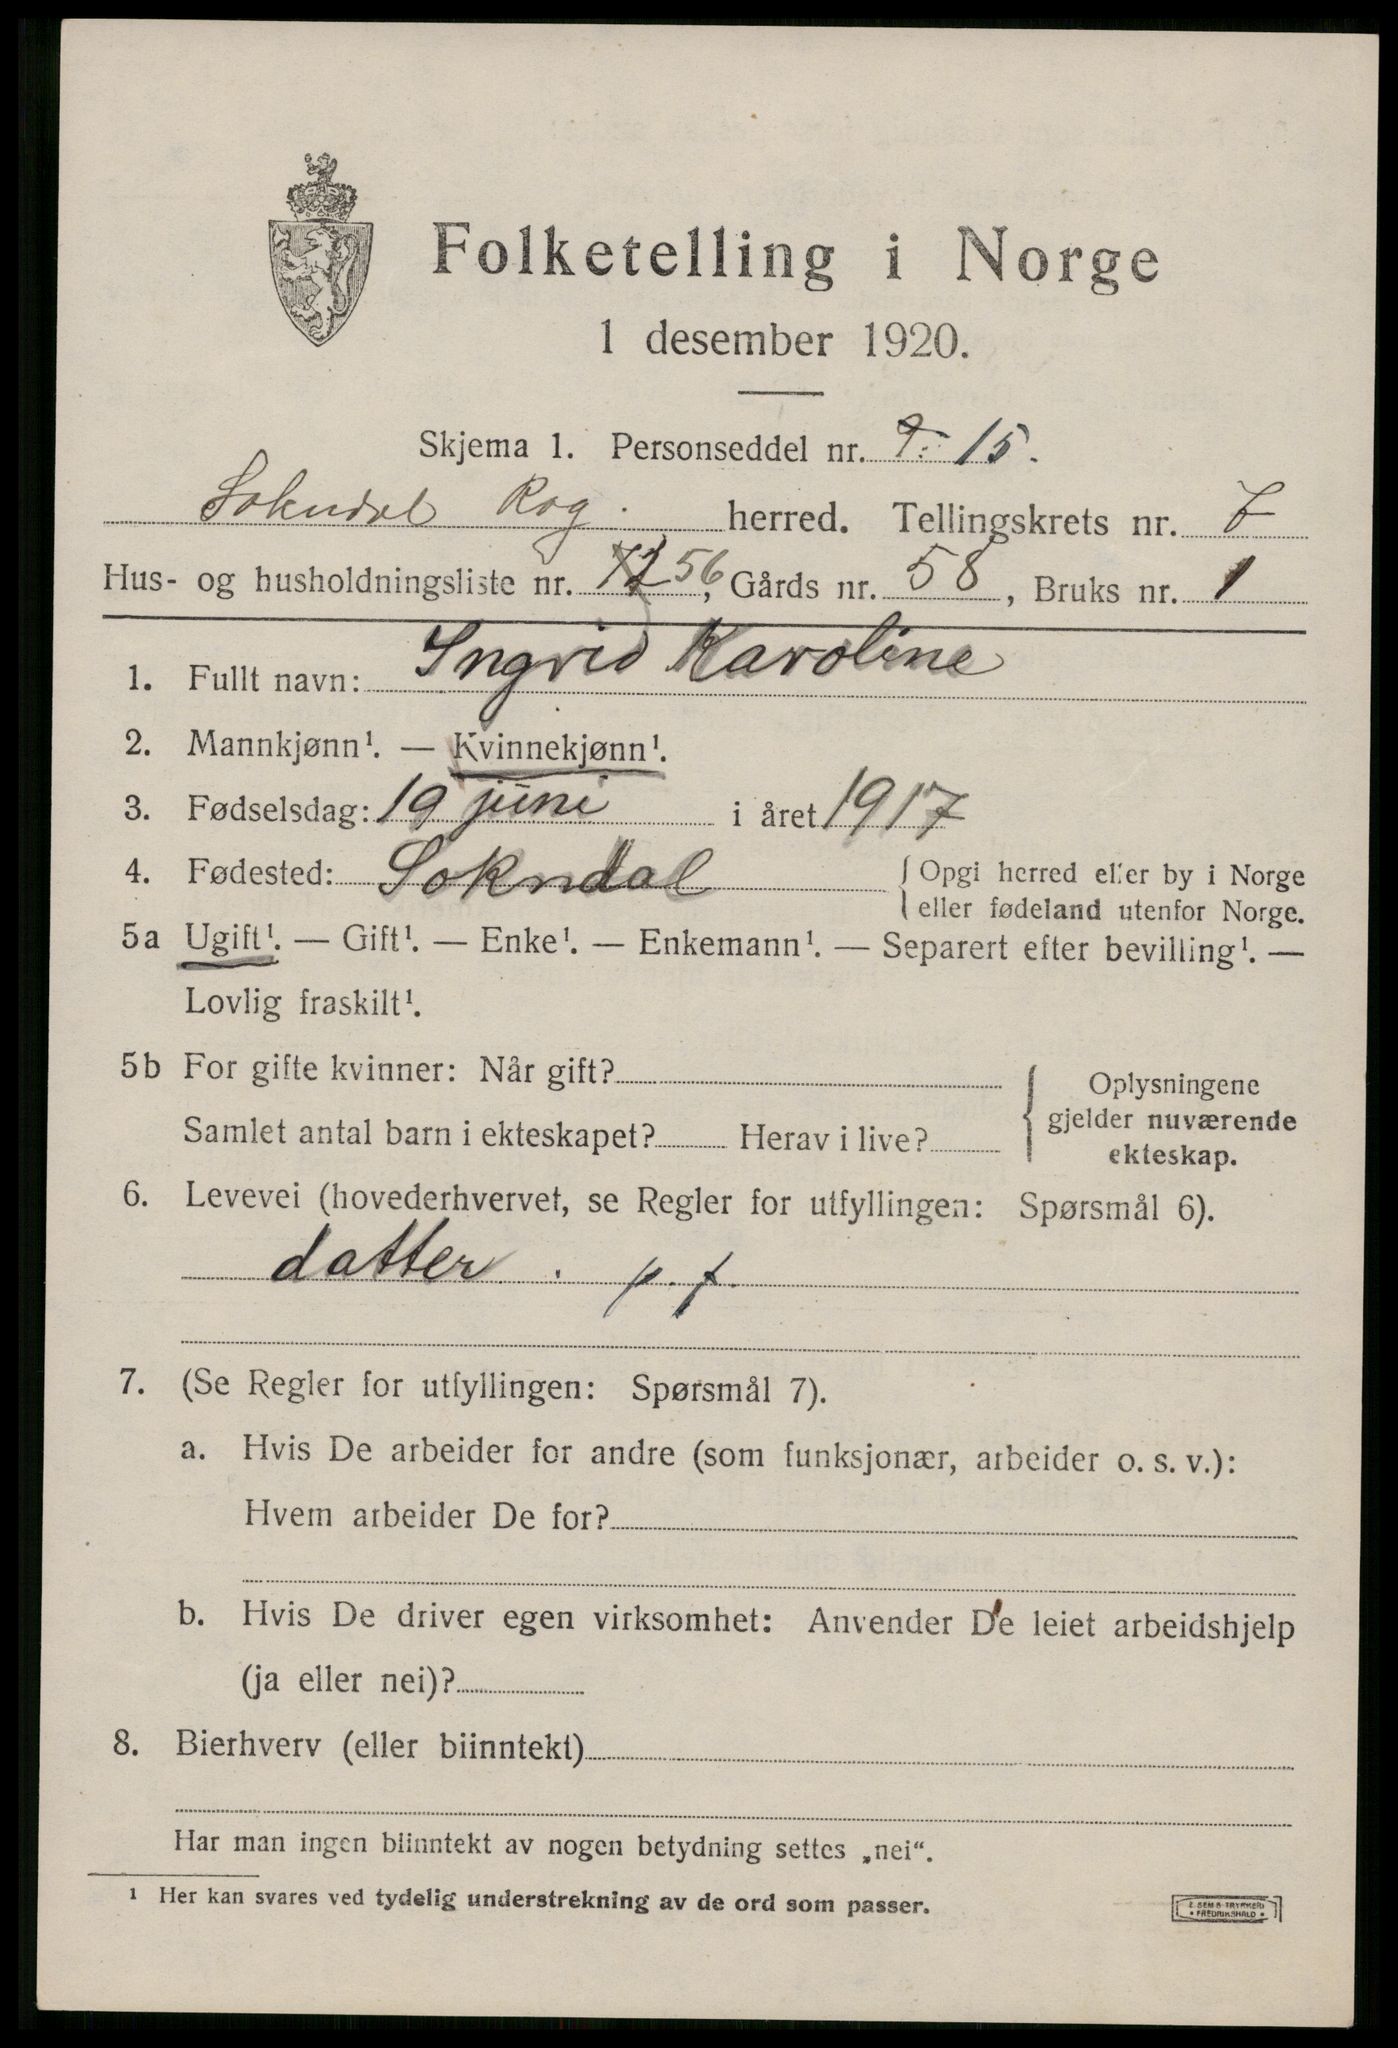 Folketelling i Norge
1 desember 1920.
Skjema 1. Personseddel nr. 9. 15.
Sokndal Rog. herred. Tellingskrets nr. 7
Hus- og husholdningsliste nr. 56, Gårds nr. 58, Bruks nr. 1
1. Fullt navn: Ingrid Karoline
2. Mannkjønn¹. — Kvinnekjønn¹.
3. Fødselsdag: 19 juni i året 1917
4. Fødested: Sokndal { Opgi herred eller by i Norge
eller fødeland utenfor Norge.
5a Ugift¹. — Gift¹. — Enke¹. — Enkemann¹. — Separert efter bevilling¹. —
Lovlig fraskilt¹.
5b For gifte kvinner: Når gift? { Oplysningene
gjelder nuværende
Samlet antal barn i ekteskapet? Herav i live?
ekteskap.
6. Levevei (hovederhvervet, se Regler for utfyllingen: Spørsmål 6).
datter. p. f.
7. (Se Regler for utfyllingen: Spørsmål 7).
a. Hvis De arbeider for andre (som funksjonær, arbeider o. s. v.):
Hvem arbeider De for?
b. Hvis De driver egen virksomhet: Anvender De leiet arbeidshjelp
(ja eller nei)?
8. Bierhverv (eller biinntekt)
Har man ingen biinntekt av nogen betydning settes „nei“.
¹ Her kan svares ved tydelig understrekning av de ord som passer.
SEM & TRYKKERI
• FREDRIKSHALD •